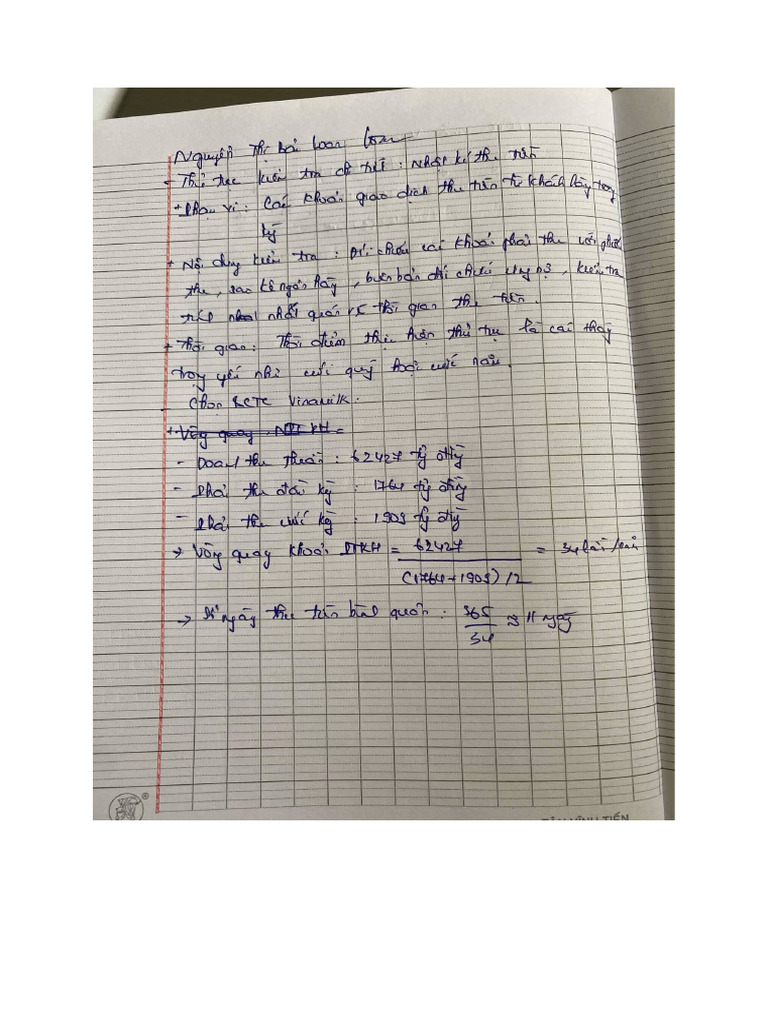 Nguyễn Thị Hải Loan
- Thủ tục kiểm tra chi tiết : Nhật kí thu tiền
+ Phạm vi : Các khoản giao dịch thu tiền từ khách hàng trong
kỳ
+ Nội dung kiểm tra : Đối chiếu các khoản phải thu với phiếu
thu, sao kê ngân hàng, biên bản đối chiếu công nợ, kiểm tra
nhất quán về thời gian thu tiền.
+ Thời gian : Thời điểm thực hiện thủ tục là các tháng
trọng yếu như cuối quý hoặc cuối năm.
- Chọn BCTC Vinamilk.
+ Vòng quay KH =
- Doanh thu thuần : 62427 tỷ đồng
- Phải thu đầu kỳ : 1764 tỷ đồng
- Phải thu cuối kỳ : 1909 tỷ đồng
→ Vòng quay khoản PTKH = 62427 / (1764+1909)/2 = 34 lần/năm
→ Số ngày thu tiền bình quân : 365 / 34 ≈ 11 ngày
VĨNH TIẾN